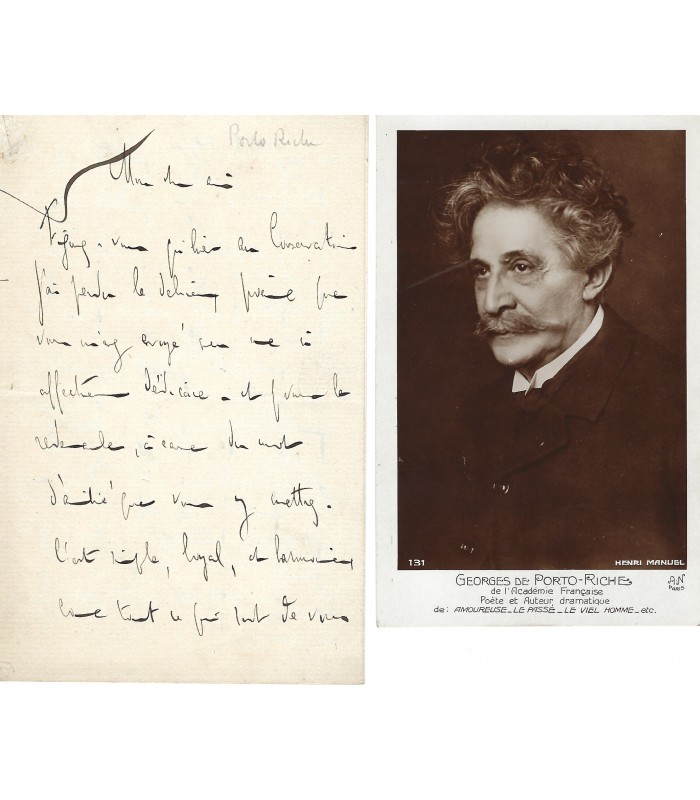 Porto Riche
Mon cher ami
Figurez-vous qu'hier au Conservatoire
j'ai perdu le délicieux poème que
vous m'avez envoyé avec une si
affectueuse dédicace - et je
à cause du mot
d'amitié que vous y mettez.
C'est simple, loyal, et harmonieux
comme tout ce qui sort de vous
131
HENRI MANUEL
GEORGES DE PORTO-RICHE
de l'Académie Française
Poète et Auteur dramatique
de: AMOUREUSE_LE PASSÉ_LE VIEL HOMME_etc.
AN
PARIS